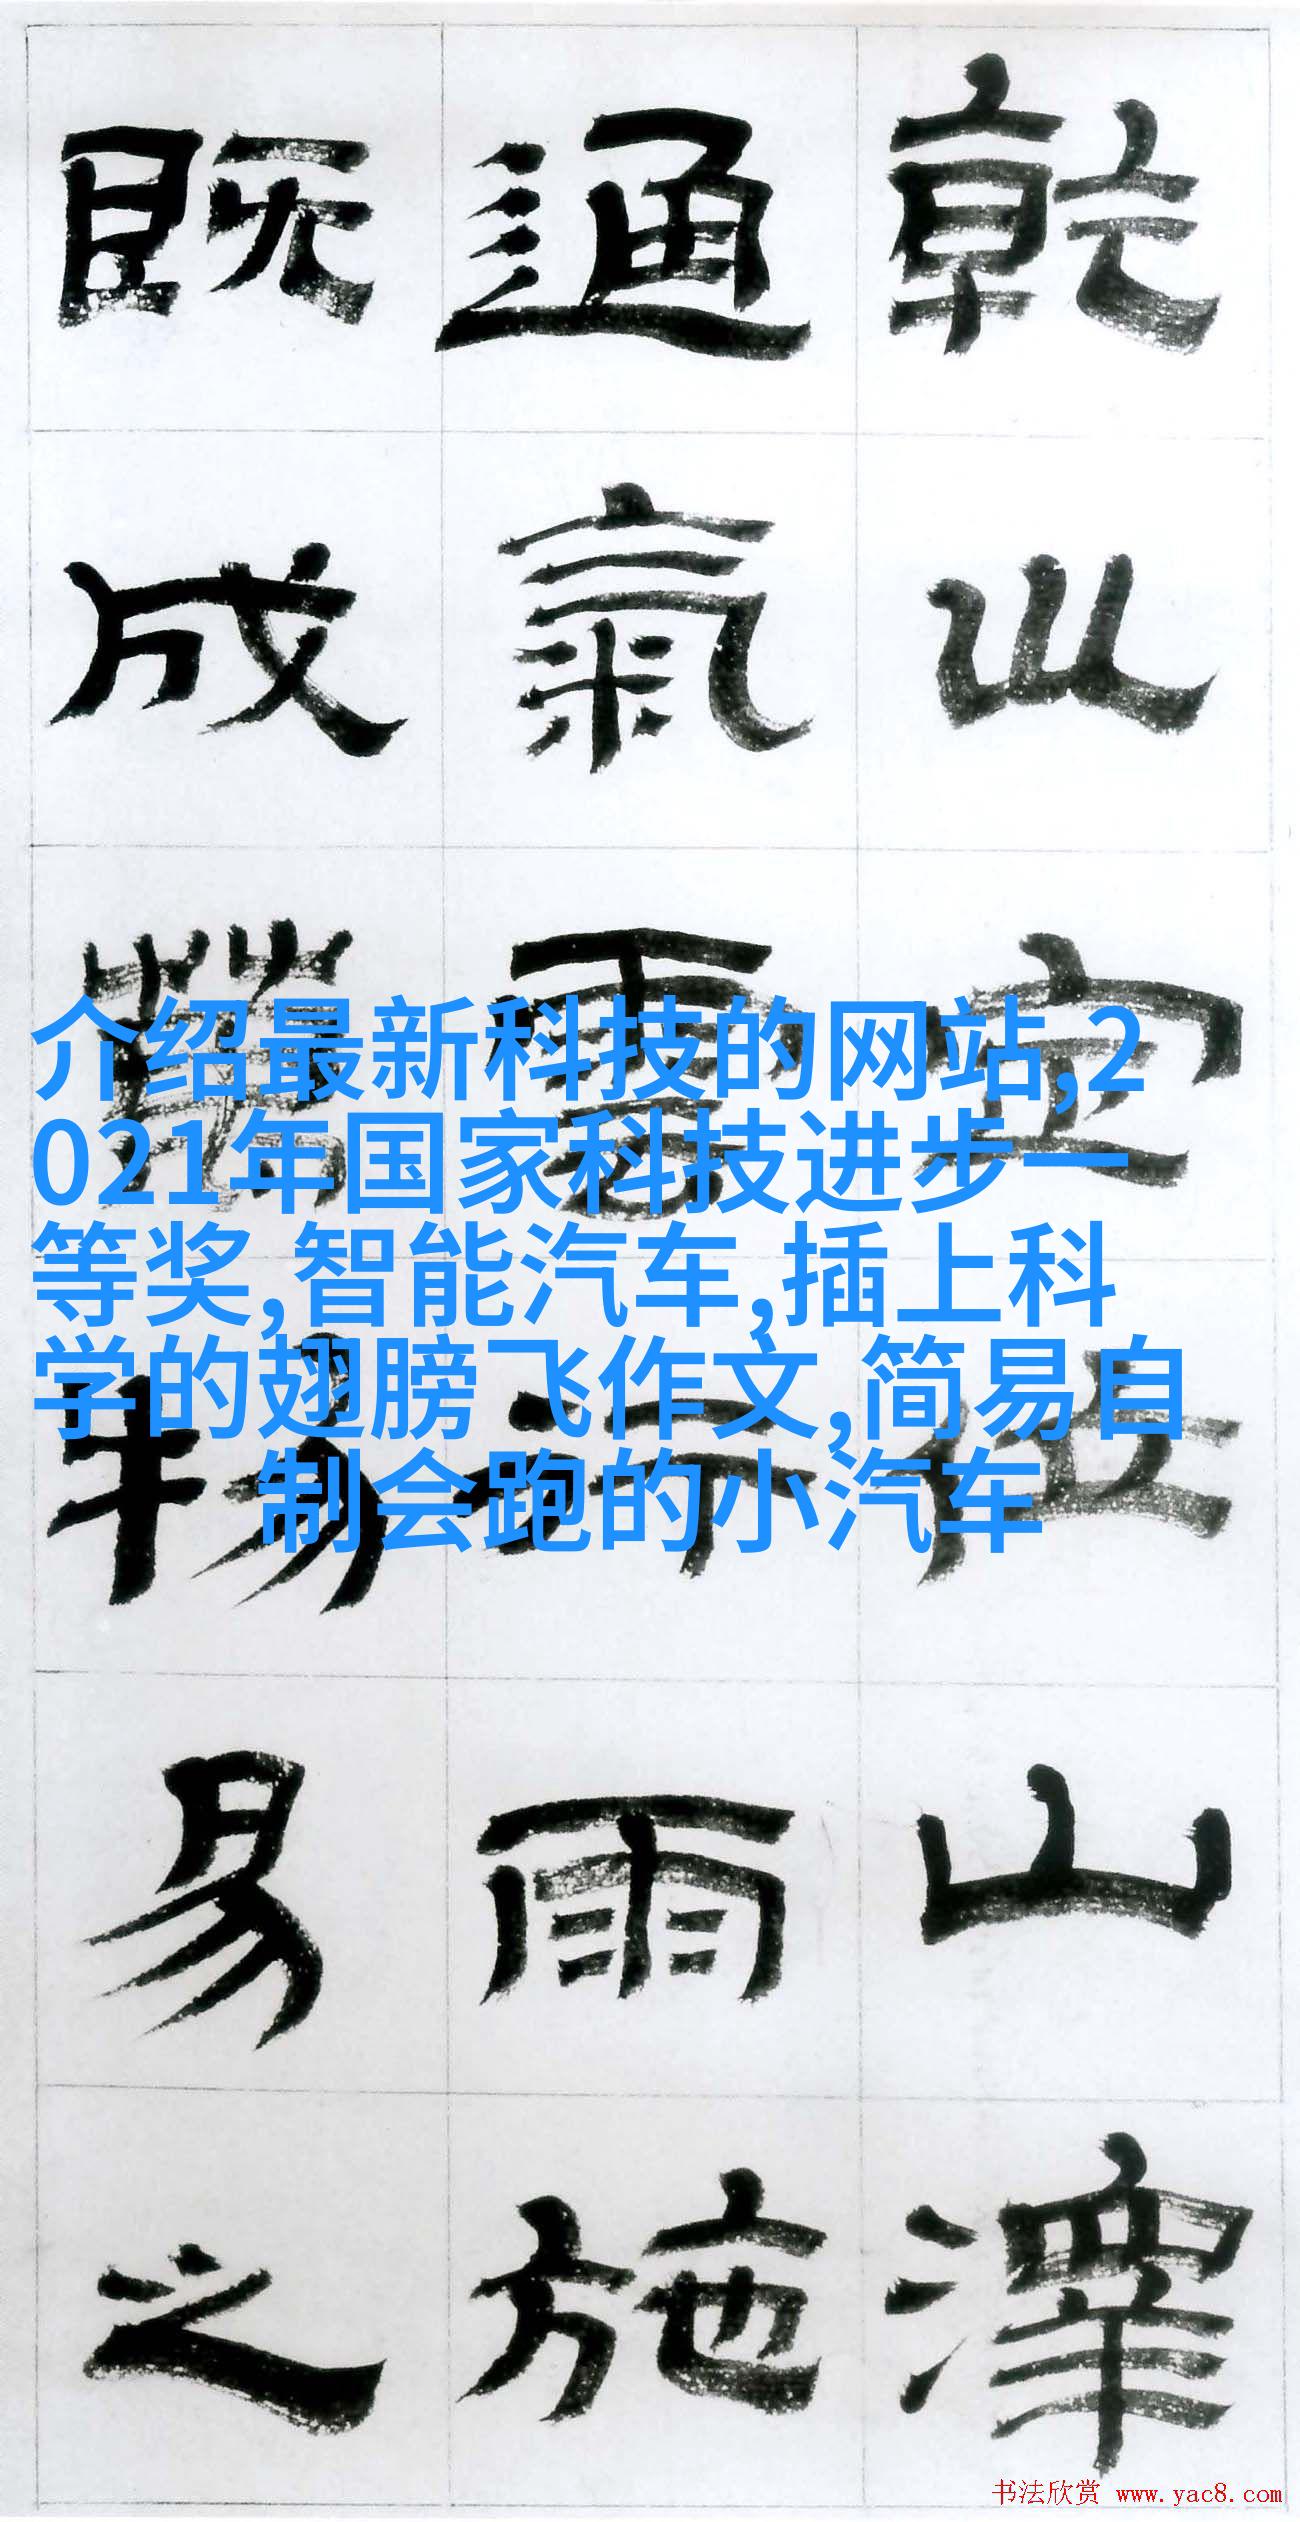 乾坤定位山澤
通氣雲行雨施
既成萬物易之
介绍最新科技的网站,2
021年国家科技进步一
等奖,智能汽车,插上科
学的翅膀飞作文,简易自
制会跑的小汽车
书法欣赏 www.yac8.com